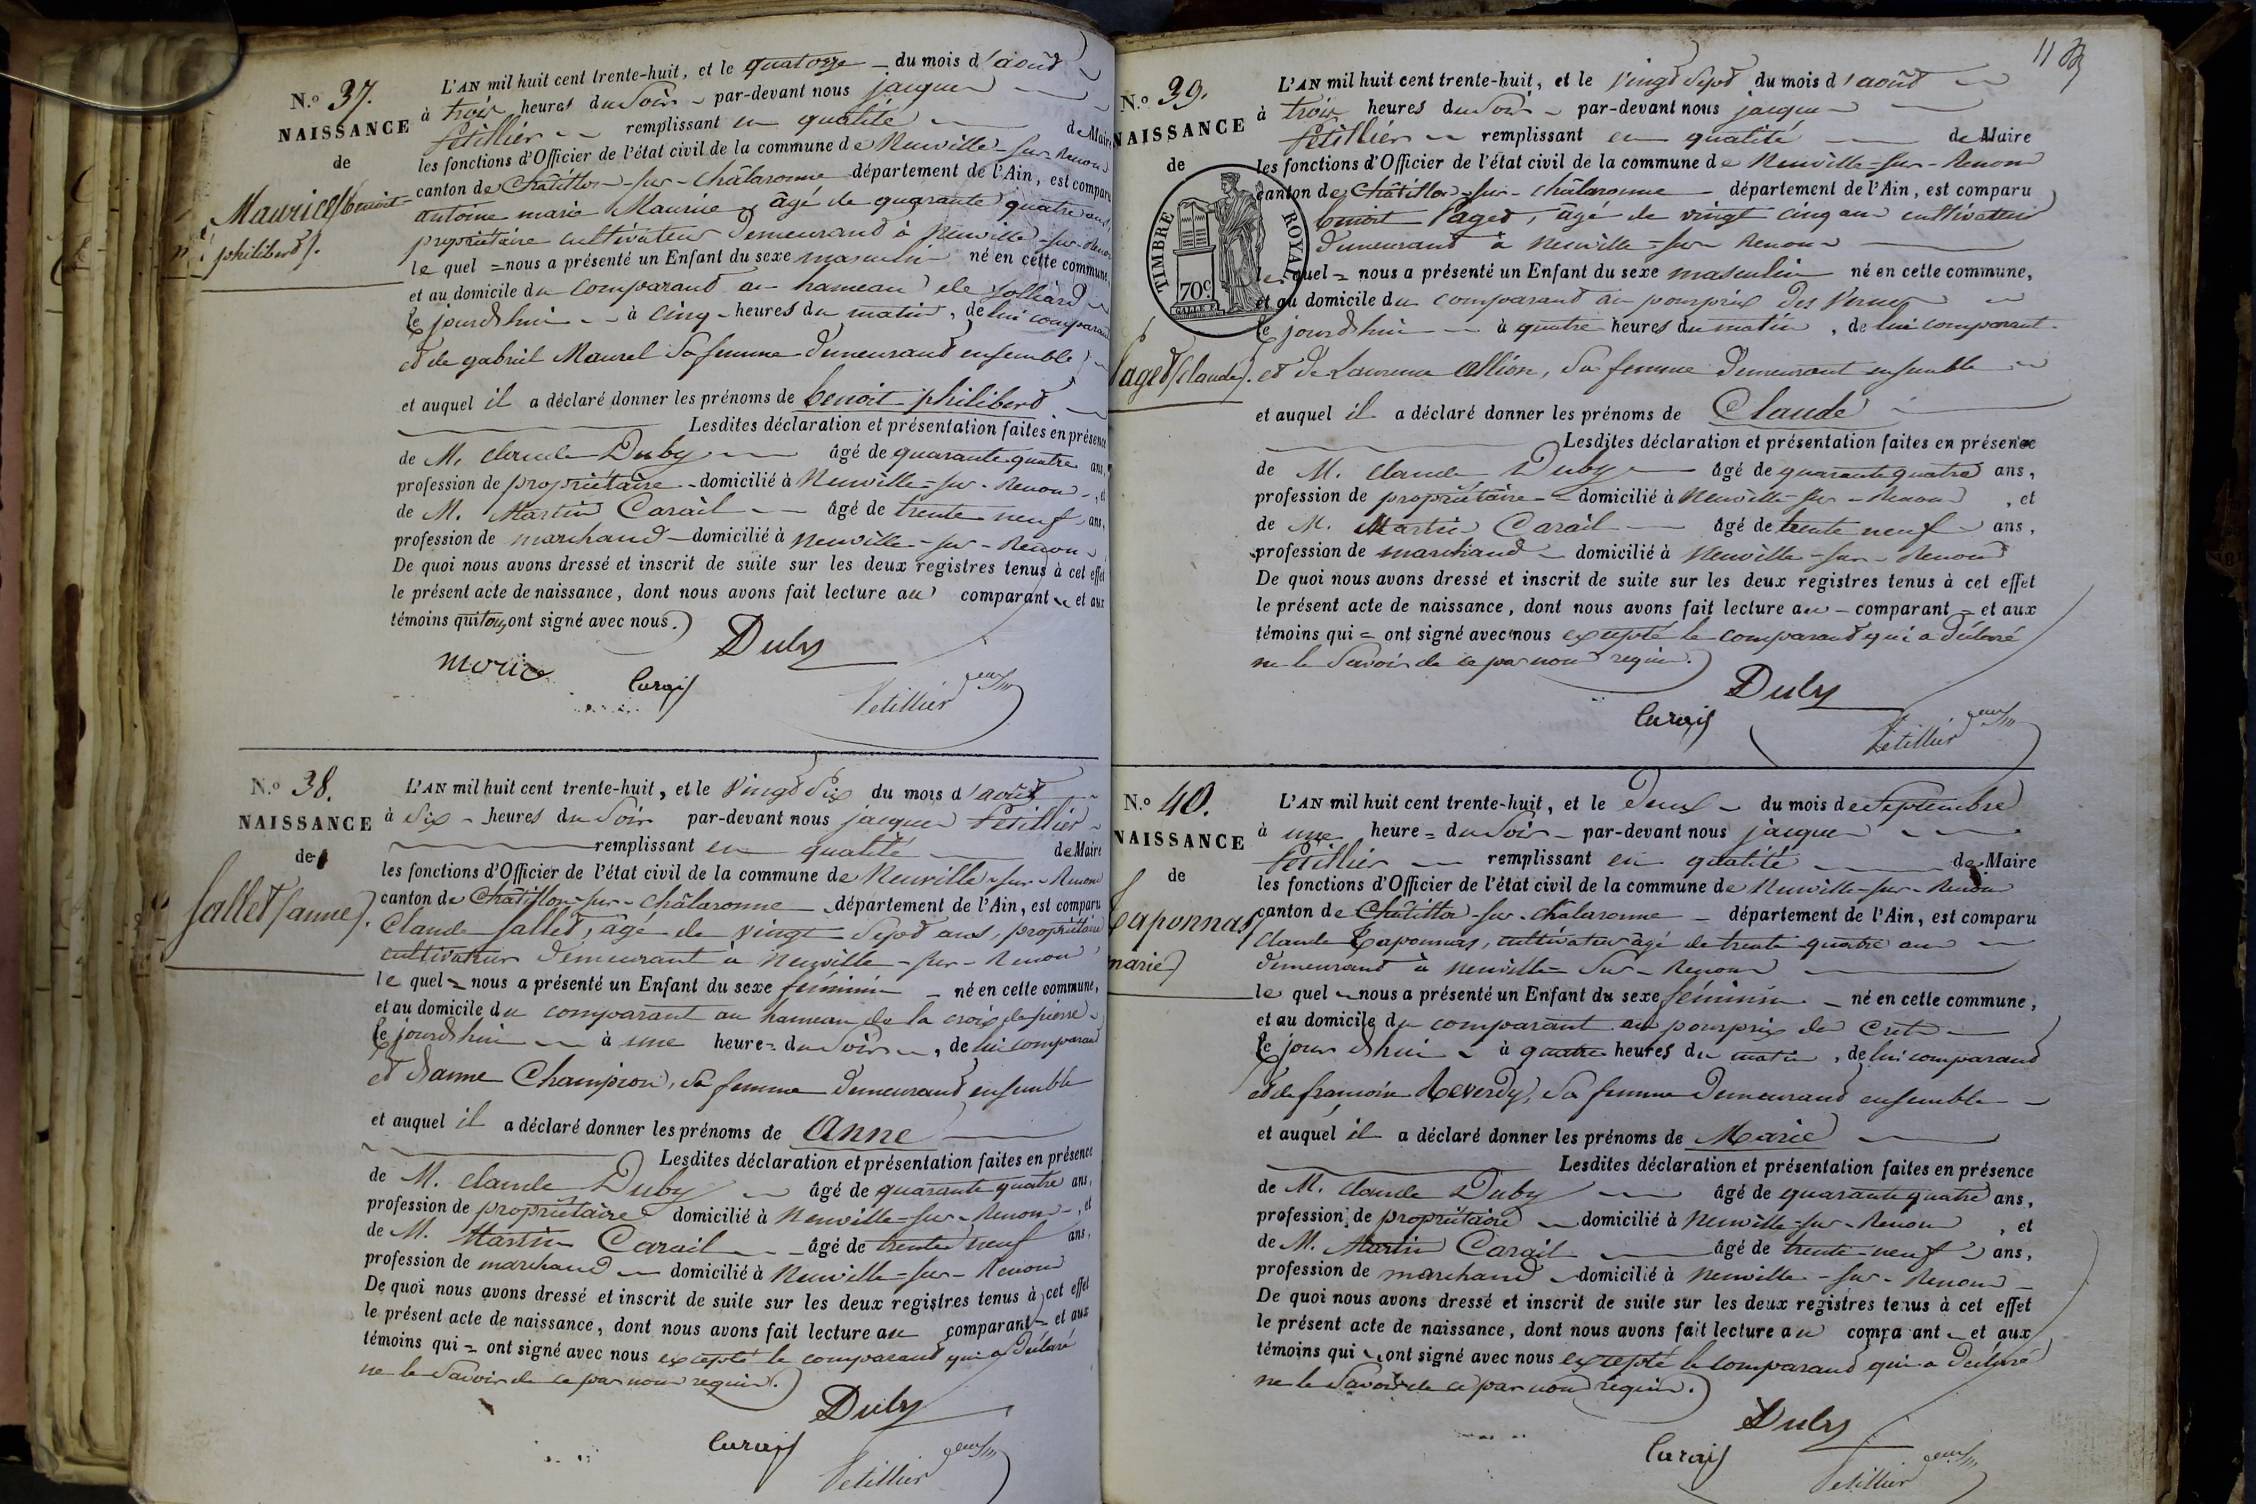 N.º 37.
NAISSANCE
de
Maurice (benoit
philiberd).
L'AN mil huit cent trente-huit, et le quatorze du mois d'aoud
à trois heures du Soir par-devant nous jacques
Petillier remplissant en qualité de Maire
les fonctions d'Officier de l'état civil de la commune de Neuville-sur-Renon
canton de Châtillon-sur-Châlaronne département de l'Ain, est comparu
antoine marie Maurice, âgé de quarante quatre ans,
propriétaire cultivateur demeurand à Neuville-sur-Renon
le quel = nous a présenté un Enfant du sexe masculin né en cette commune,
et au domicile du comparand au hameau de
le jourdhui à cinq heures du matin, de lui comparand
et de gabriel Maurel sa femme demeurand ensemble
et auquel il a déclaré donner les prénoms de benoit philiberd
Lesdites déclaration et présentation faites en présence
de M. claude Duby âgé de quarante quatre ans,
profession de propriétaire domicilié à Neuville-sur-Renon, et
de M. Martin Carail âgé de trente neuf ans,
profession de marchand domicilié à Neuville-sur-Renon
De quoi nous avons dressé et inscrit de suite sur les deux registres tenus à cet effet
le présent acte de naissance, dont nous avons fait lecture au comparant et aux
témoins qui tous ont signé avec nous.
Duby
morice
Carail
Petillier
N.º 38.
NAISSANCE
de
Sallet (anne).
L'AN mil huit cent trente-huit, et le vingt six du mois d'août
à six heures du Soir par-devant nous jacques Petillier
remplissant en qualité de Maire
les fonctions d'Officier de l'état civil de la commune de Neuville-sur-Renon
canton de Châtillon-sur-Châlaronne département de l'Ain, est comparu
Claude Sallet, âgé de vingt-sept ans, propriétaire
cultivateur demeurant à Neuville-sur-Renon
le quel = nous a présenté un Enfant du sexe féminin né en cette commune,
et au domicile du comparant au hameau de la croix de pierre
le jourdhui à une heure = du Soir, de lui comparand
et d'anne Champion, sa femme demeurand ensemble
et auquel il a déclaré donner les prénoms de Anne
Lesdites déclaration et présentation faites en présence
de M. claude Duby âgé de quarante quatre ans,
profession de propriétaire domicilié à Neuville-sur-Renon, et
de M. Martin Carail âgé de trente neuf ans,
profession de marchand domicilié à Neuville-sur-Renon
De quoi nous avons dressé et inscrit de suite sur les deux registres tenus à cet effet
le présent acte de naissance, dont nous avons fait lecture au comparant et aux
témoins qui = ont signé avec nous excepté le comparand qui a déclaré
ne le Savoir de ce par nous requis.
Duby
Carail
Petillier
11
N.º 39.
NAISSANCE
de
TIMBRE ROYAL
70c
Paged (claude).
L'AN mil huit cent trente-huit, et le vingt Sept du mois d'août
à trois heures du Soir par-devant nous jacques
Petillier remplissant en qualité de Maire
les fonctions d'Officier de l'état civil de la commune de Neuville-sur-Renon
canton de Châtillon-sur-Châlaronne département de l'Ain, est comparu
benoit Paged, âgé de vingt cinq ans cultivateur
demeurand à Neuville-sur-Renon
le quel = nous a présenté un Enfant du sexe masculin né en cette commune,
et au domicile du comparand au pourprix des Vernes
le jourdhui à quatre heures du matin, de lui comparant
et de Laurence Allion, sa femme demeurant ensemble
et auquel il a déclaré donner les prénoms de Claude
Lesdites déclaration et présentation faites en présence
de M. claude Duby âgé de quarante quatre ans,
profession de propriétaire domicilié à Neuville-sur-Renon, et
de M. Martin Carail âgé de trente neuf ans,
profession de marchand domicilié à Neuville-sur-Renon
De quoi nous avons dressé et inscrit de suite sur les deux registres tenus à cet effet
le présent acte de naissance, dont nous avons fait lecture au comparant et aux
témoins qui = ont signé avec nous excepté le comparand qui a déclaré
ne le Savoir de ce par nous requis.
Duby
Carail
Petillier
N.º 40.
NAISSANCE
de
Taponnas
marie)
L'AN mil huit cent trente-huit, et le deux du mois de Septembre
à une heure = du Soir par-devant nous jacques
Petillier remplissant en qualité de Maire
les fonctions d'Officier de l'état civil de la commune de Neuville-sur-Renon
canton de Châtillon-sur-Châlaronne département de l'Ain, est comparu
Claude Taponnas, cultivateur âgé de trente quatre ans
demeurand à Neuville-Sur-Renon
le quel nous a présenté un Enfant du sexe féminin né en cette commune,
et au domicile du comparant au pourprix de Cret
le jourdhui à quatre heures du matin, de lui comparand
et de francoise Reverdy, sa femme demeurand ensemble
et auquel il a déclaré donner les prénoms de Marie
Lesdites déclaration et présentation faites en présence
de M. claude Duby âgé de quarante quatre ans,
profession de propriétaire domicilié à Neuville-sur-Renon, et
de M. Martin Carail âgé de trente-neuf ans,
profession de marchand domicilié à Neuville-sur-Renon
De quoi nous avons dressé et inscrit de suite sur les deux registres tenus à cet effet
le présent acte de naissance, dont nous avons fait lecture au compa ant et aux
témoins qui ont signé avec nous excepté le comparand qui a déclaré
ne le Savoir de ce par nous requis.
Duby
Carail
Petillier